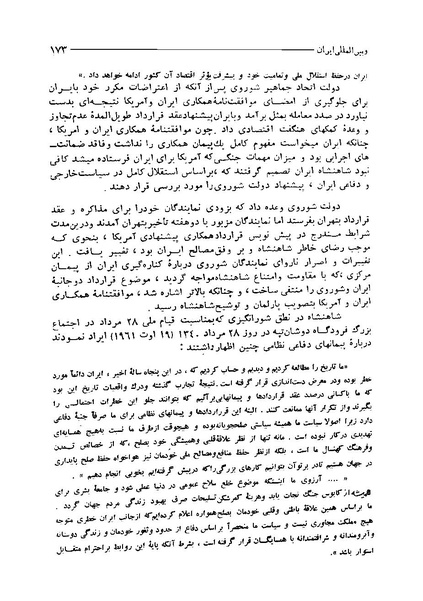 وبین‌المللی ایران ۱۷۳
ایران درحفظ استقلال ملی وتمامیت خود و پیشرفت مؤثر اقتصاد آن کشور ادامه خواهد داد .»
دولت اتحاد جماهیر شوروی پس از آنکه از اعتراضات مکرر خود بایران
برای جلوگیری از امضای موافقت‌نامهٔ همکاری ایران وآمریکا نتیجه‌ای بدست
نیاورد در صدد معامله بمثل برآمد وبایران پیشنهاد عقد قرارداد طویل‌المدهٔ عدم تجاوز
و وعدهٔ کمکهای هنگفت اقتصادی داد. چون موافقتنامهٔ همکاری ایران و امریکا ،
چنانکه ایران میخواست مفهوم کامل یك پیمان همکاری را نداشت وفاقد ضمانت‌ـ
های اجرایی بود و میزان مهمات جنگی که آمریکا برای ایران فرستاده میشد کافی
نبود شاهنشاه ایران تصمیم گرفتند که ، براساس استقلال کامل در سیاست خارجی
و دفاعی ایران ، پیشنهاد دولت شوروی را مورد بررسی قرار دهند .
دولت شوروی وعده داد که بزودی نمایندگان خود را برای مذاکره و عقد
قرارداد بتهران بفرستد اما نمایندگان مزبور با دو هفته تأخیر بتهران آمدند ودرین مدت
شرایط مندرج در پیش نویس قرارداد همکاری پیشنهادی آمریکا ، بنحوی که
موجب رضای خاطر شاهنشاه و بر وفق مصالح ایران بود ، تغییر یافت . این
تغییرات و اصرار ناروای نمایندگان شوروی دربارهٔ کناره‌گیری ایران از پیمان
مرکزی ، که با مقاومت وامتناع شاهنشاه مواجه گردید ، موضوع قرارداد دوجانبهٔ
ایران وشوروی را منتفی ساخت ، و چنانکه بالاتر اشاره شد ، موافقتنامهٔ همکاری
ایران و آمریکا بتصویب پارلمان و توشیح شاهنشاه رسید .
شاهنشاه در نطق شورانگیزی که بمناسبت قیام ملی ۲۸ مرداد در اجتماع
بزرگ فرودگاه دوشان‌تپه در روز ۲۸ مرداد ۱۳۴۰ (۱۹ اوت ۱۹۶۱) ایراد نمودند
دربارهٔ پیمانهای دفاعی نظامی چنین اظهار داشتند :
«ما تاریخ را مطالعه کردیم و دیدیم و حساب کردیم که ، در این پنجاه سالهٔ اخیر ، ایران دائماً مورد
خطر بوده ودر معرض دست‌اندازی قرار گرفته است. نتیجهٔ تجارب گذشته ودرك واقعیات تاریخ این بود
که ما باکسانی درصدد عقد قراردادها و پیمانهایی برآئیم که بتوانند جلو این خطرات احتمالی را
بگیرند واز تکرار آنها ممانعت کنند . البته این قراردادها و پیمانهای نظامی برای ما صرفاً جنبهٔ دفاعی
دارد زیرا اصولا سیاست ما همیشه سیاستی صلحجویانه بوده و هیچوقت ازطرف ما نسبت به هیچ همسایه‌ای
تهدیدی درکار نبوده است . مانه تنها از نظر علاقهٔ قلبی وهمیشگی خود بصلح ، که از خصائص تمدن
وفرهنگ کهنسال ما است ، بلکه ازنظر حفظ منافع ومصالح ملی خودمان نیز هواخواه حفظ صلح پایداری
در جهان هستیم تادر پرتوآن بتوانیم کارهای بزرگی را که درپیش گرفته‌ایم بخوبی انجام دهیم »
« .... آرزوی ما اینستکه موضوع خلع سلاح عمومی در دنیا عملی شود و جامعهٔ بشری برای
همیشه از کابوس جنگ نجات یابد وهزینهٔ کمرشکن تسلیحات صرف بهبود زندگی مردم جهان گردد .
ما براساس همین علاقهٔ باطنی وقلبی خودمان بصلح همواره اعلام کرده‌ایم که ازجانب ایران خطری متوجه
هیچ مملکت مجاوری نیست و سیاست ما منحصراً براساس دفاع از حدود وثغور خودمان و زندگی دوستانه
وآبرومندانه و شرافتمندانه با همسایگان قرار گرفته است ، بشرط آنکه پایهٔ این روابط براحترام متقابل
استوار باشد ».